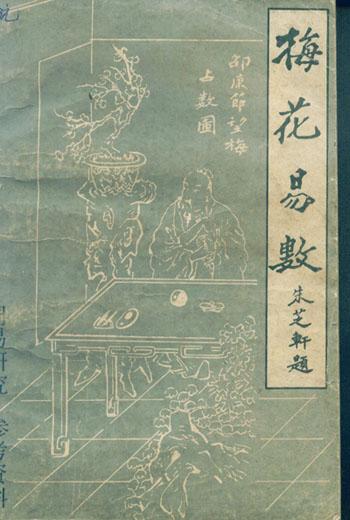 梅花易數
朱芝軒題
邵康節望梅
占數圖
周易研究 參考資料